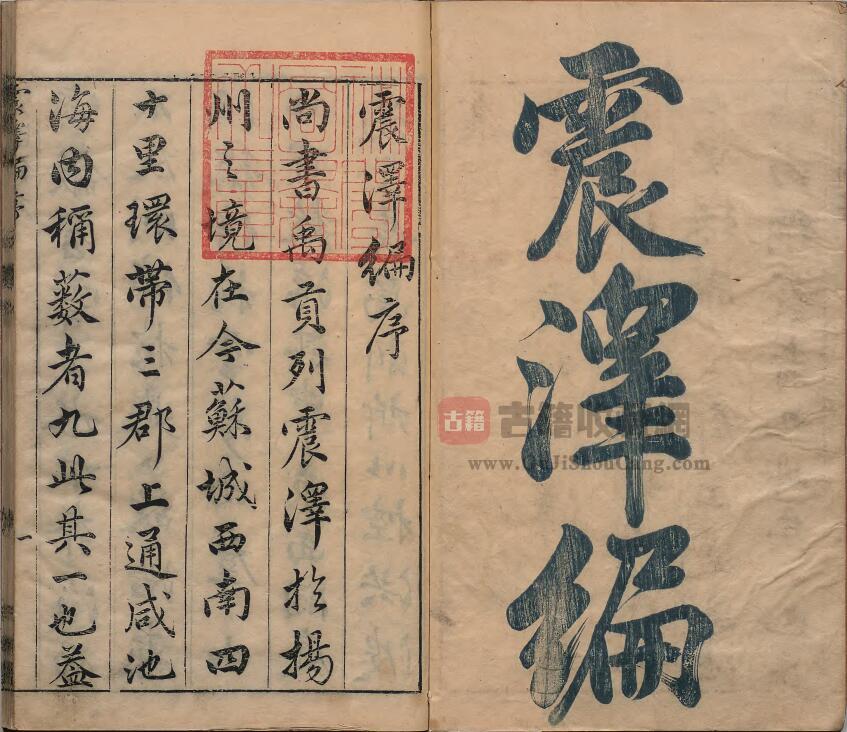 震澤編
震澤編序
尚書禹貢列震澤於揚
州之境在今蘇城西南四
十里環帶三郡上通咸池
海内稱藪者九此其一也葢
震澤編序
一
古籍
古籍收藏網
www.GuJiShouCang.com